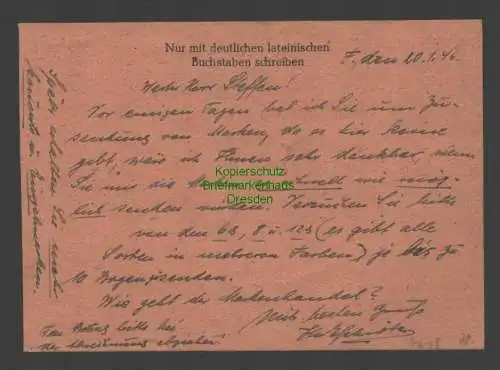 Nur mit deutlichen lateinischen
Buchstaben schreiben
F., den 20.1.46
Werter Herr Steffen!
Vor einigen Tagen bat ich Sie um Zu-
sendung von Marken, da es hier keine
gibt, wäre ich Ihnen sehr dankbar, wenn
Sie mir die Marken schnell wie mög-
lich senden würden. Senden Sie bitte
von den 6₰, 8 u. 12₰ (es gibt alle
Sorten in mehreren Farben) je bis zu
10 Bogen zusenden.
Wie geht der Markenhandel?
Mit besten Gruß
Den Betrag bitte bei
der abziehen.
Später erhalten Sie mehr
in
Kopierschutz
Briefmarkenhaus
Dresden